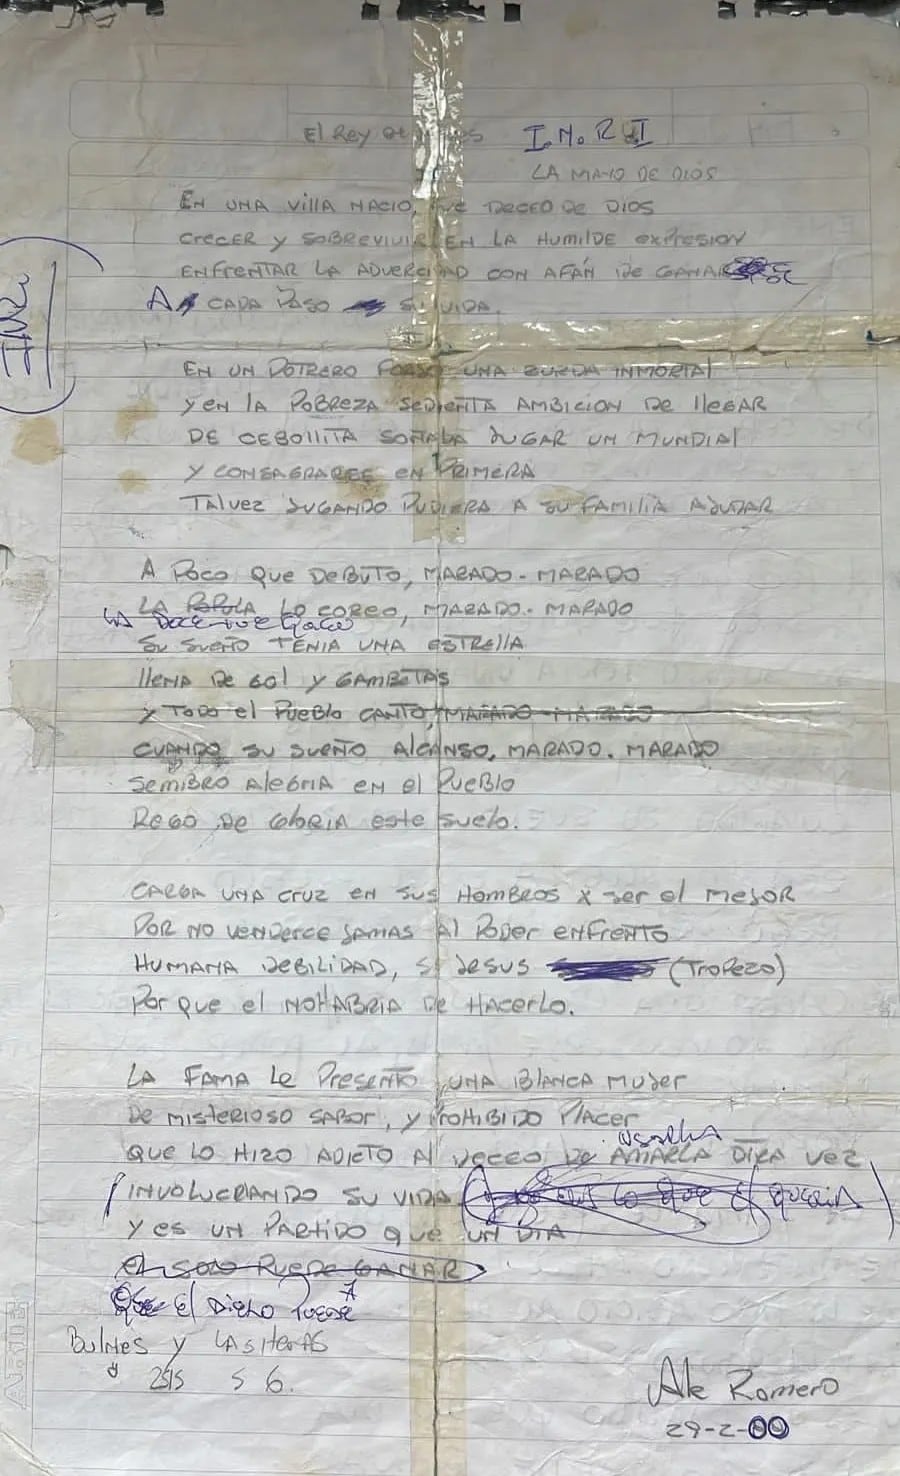 El Rey de I.N.R.I
LA MANO DE DIOS
EN UNA VILLA NACIO, FUE DECEO DE DIOS
CRECER Y SOBREVIVIR EN LA HUMILDE EXPRESION
ENFRENTAR LA ADVERCIDAD CON AFÁN DE GANARSE
A CADA PASO SU VIDA.
INRI
EN UN POTRERO FORJO UNA ZURDA INMORTAL
Y EN LA POBREZA SEDIENTA AMBICION DE LLEGAR
DE CEBOLLITA SOÑABA JUGAR UN MUNDIAL
Y CONSAGRARCE EN PRIMERA
TALVEZ JUGANDO PUDIERA A SU FAMILIA AJUDAR
A POCO QUE DEBUTO, MARADO - MARADO
LA POPULA LO COREO, MARADO - MARADO
LA DOCE FUE QUIEN
SU SUEÑO TENIA UNA ESTRELLA
LLENA DE GOL Y GAMBETAS
Y TODO EL PUEBLO CANTO, MARADO - MARADO
CUANDO SU SUEÑO ALCANSO, MARADO. MARADO
SEMBRO ALEGRIA EN EL PUEBLO
REGO DE GLORIA ESTE SUELO.
CARGA UNA CRUZ EN SUS HOMBROS X SER EL MEJOR
POR NO VENDERCE JAMAS AL PODER ENFRENTO
HUMANA DEBILIDAD, SI JESUS (TROPEZO)
POR QUE EL NO HABRIA DE HACERLO.
LA FAMA LE PRESENTO UNA BLANCA MUJER
DE MISTERIOSO SABOR, Y PROHIBIDO PLACER
USARLA
QUE LO HIZO ADICTO AL DECEO DE AMARLA OTRA VEZ
INVOLUCRANDO SU VIDA lo que él quería
Y ES UN PARTIDO QUE UN DIA
EL SOLO PUEDE GANAR
que el DIEGO PUEDE A
BULNES Y LAS HERAS
2515 5 6.
Ale Romero
29-2-00